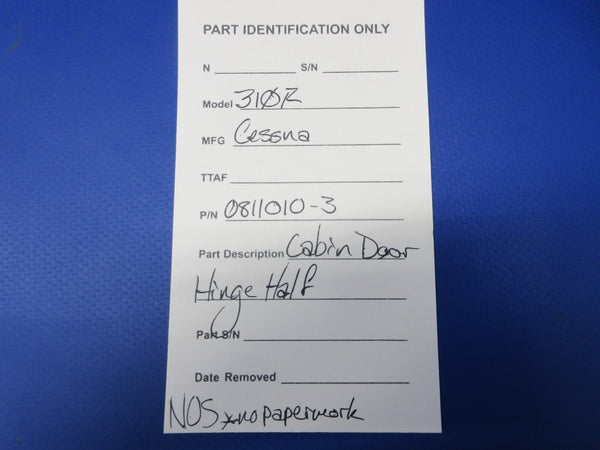 PART IDENTIFICATION ONLY
N ____________ S/N ____________
Model 310R
MFG Cessna
TTAF ____________
P/N 0811010-3
Part Description Cabin Door
Hinge Half
Part S/N ____________
Date Removed ____________
NOS *no paperwork